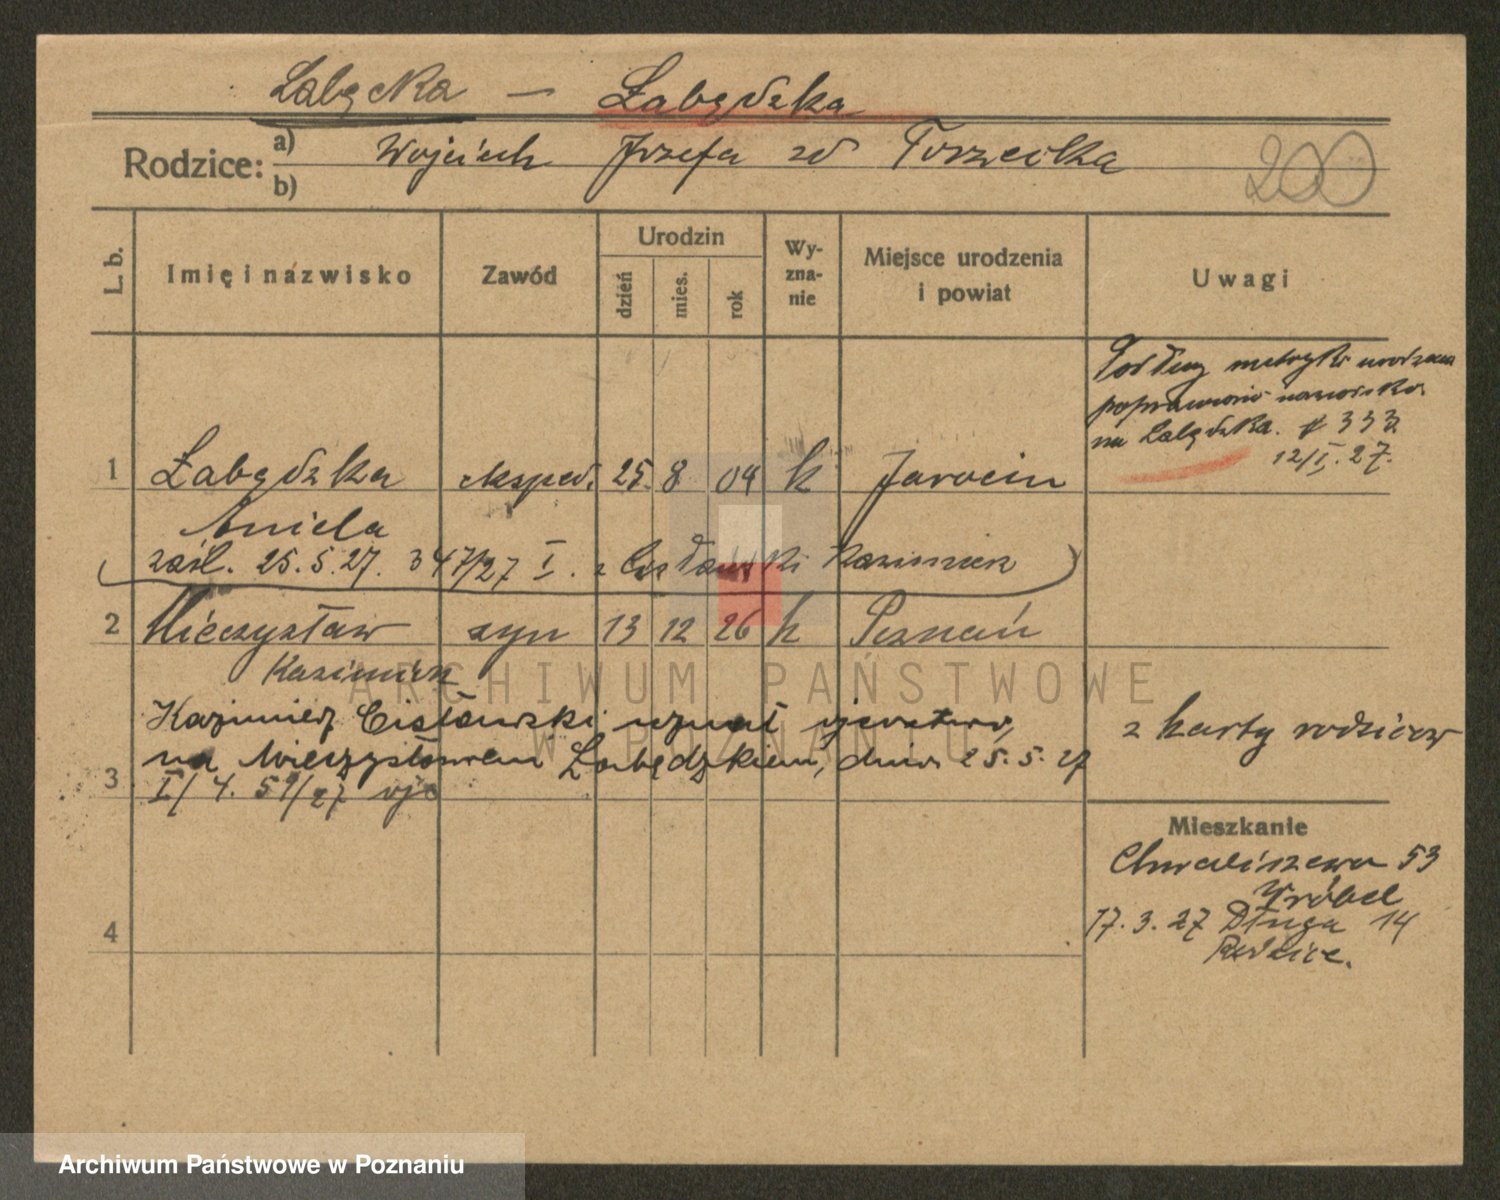 Łabęcka — Łabędzka
Rodzice: a) Wojciech Józefa zd
b)
200
L. b. Imię i nazwisko Zawód Urodzin dzień mies. rok Wyzna-nie Miejsce urodzenia i powiat Uwagi
Podług metryki urodzenia
poprawiono nazwisko
na Łabędzka. # 333
12/I. 27.
1 Łabędzka eksped. 25. 8 04 k Jarocin
Aniela
zaśl. 25.5.27. 347/27 I. z Cisławski Kazimierz
2 Mieczysław syn 13 12 26 k Poznań
Kazimierz
ARCHIWUM PAŃSTWOWE
W POZNANIU
Kazimierz Cisławski uznał ojcostwo
nad Mieczysławem Łabędzkiem, dnia 25.5.27
z karty rodziców
3 I/4. 59/27 ojc
Mieszkanie
Chwaliszewo 53
Wróbel
17. 3. 27 Długa 14
Rodzice.
4
Archiwum Państwowe w Poznaniu